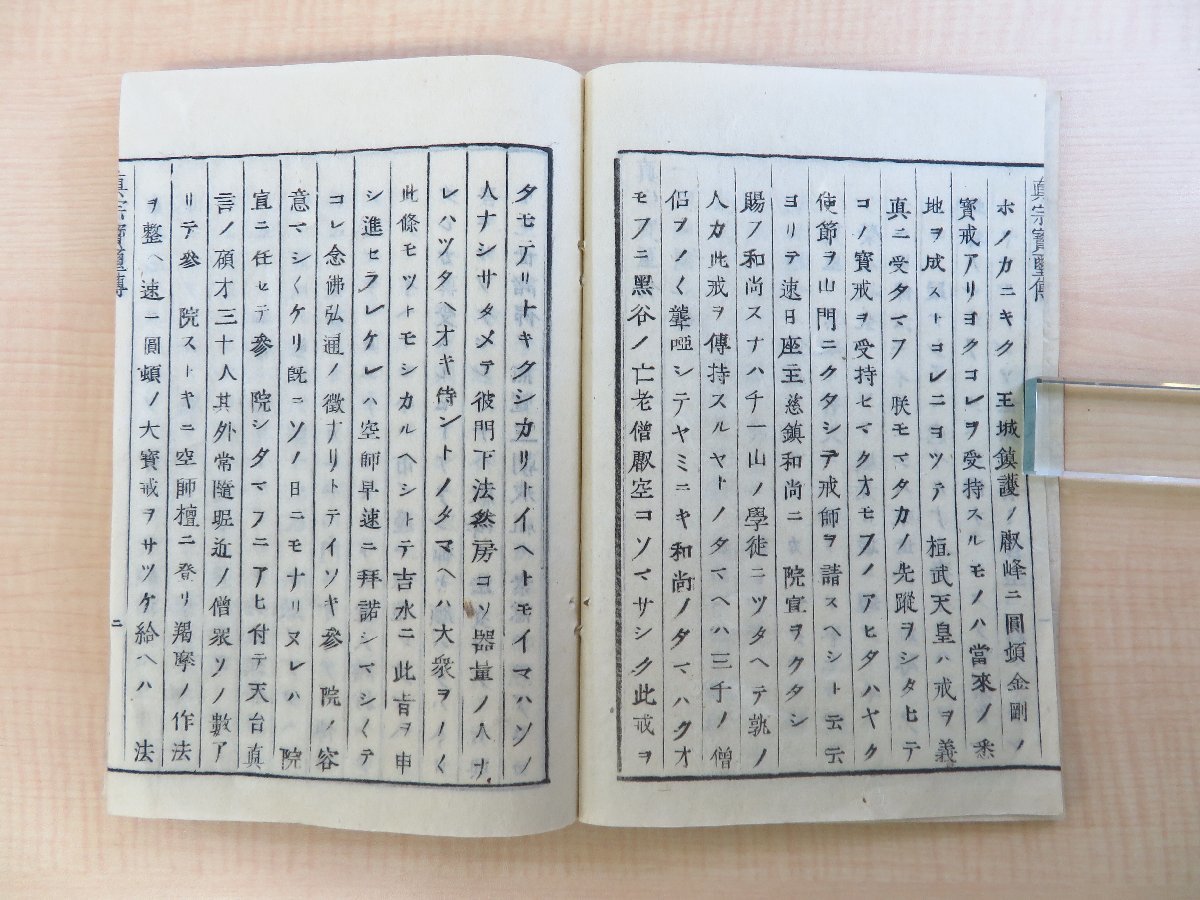 眞宗寶鑒傳
ホノカニキク王城鎮護ノ叡峰ニ圓頓金剛ノ
寶戒アリヨクコレヲ受持スルモノハ當來ノ悉
地ヲ成ストコレニヨツテ桓武天皇ハ戒ヲ義
真ニ受タマフ朕モマタカノ先蹤ヲシタヒテ
コノ寶戒ヲ受持セマクオモフノアヒタハヤク
使節ヲ山門ニクタシテ戒師ヲ請スヘシト云云
ヨリテ速日座主慈鎮和尚ニ院宣ヲクタシ
賜フ和尚スナハチ一山ノ學徒ニツタヘテ孰ノ
人カ此戒ヲ傳持スルヤトノタマヘハ三千ノ僧
侶ヲノ〱聾啞シテヤミニキ和尚ノタマハクオ
モフニ黑谷ノ亡老僧叡空コソマサシク此戒ヲ
タモテリトキクシカリトイヘトモイマハソノ
人ナシサタメテ彼門下法然房コソ器量ノ人ナ
レハツタヘオキ侍ントノタマヘハ大衆ヲノ〱
此條モツトモシカルヘシトテ吉水ニ此旨ヲ申
シ進セラレケレハ空師早速ニ拜諾シマシ〱テ
コレ念佛弘通ノ徴ナリトテイソキ參院ノ容
意マシ〱ケリ既ニソノ日ニモナリヌレハ院
宣ニ任セテ參院シタマフニアヒ付テ天台真
言ノ碩才三十人其外常隨昵近ノ僧衆ソノ數ア
リテ參院ストキニ空師檀ニ登リ羯摩ノ作法
ヲ整ヘ速ー圓頓ノ大寶戒ヲサツケ給ヘハ法
眞宗寶鑒傳
二